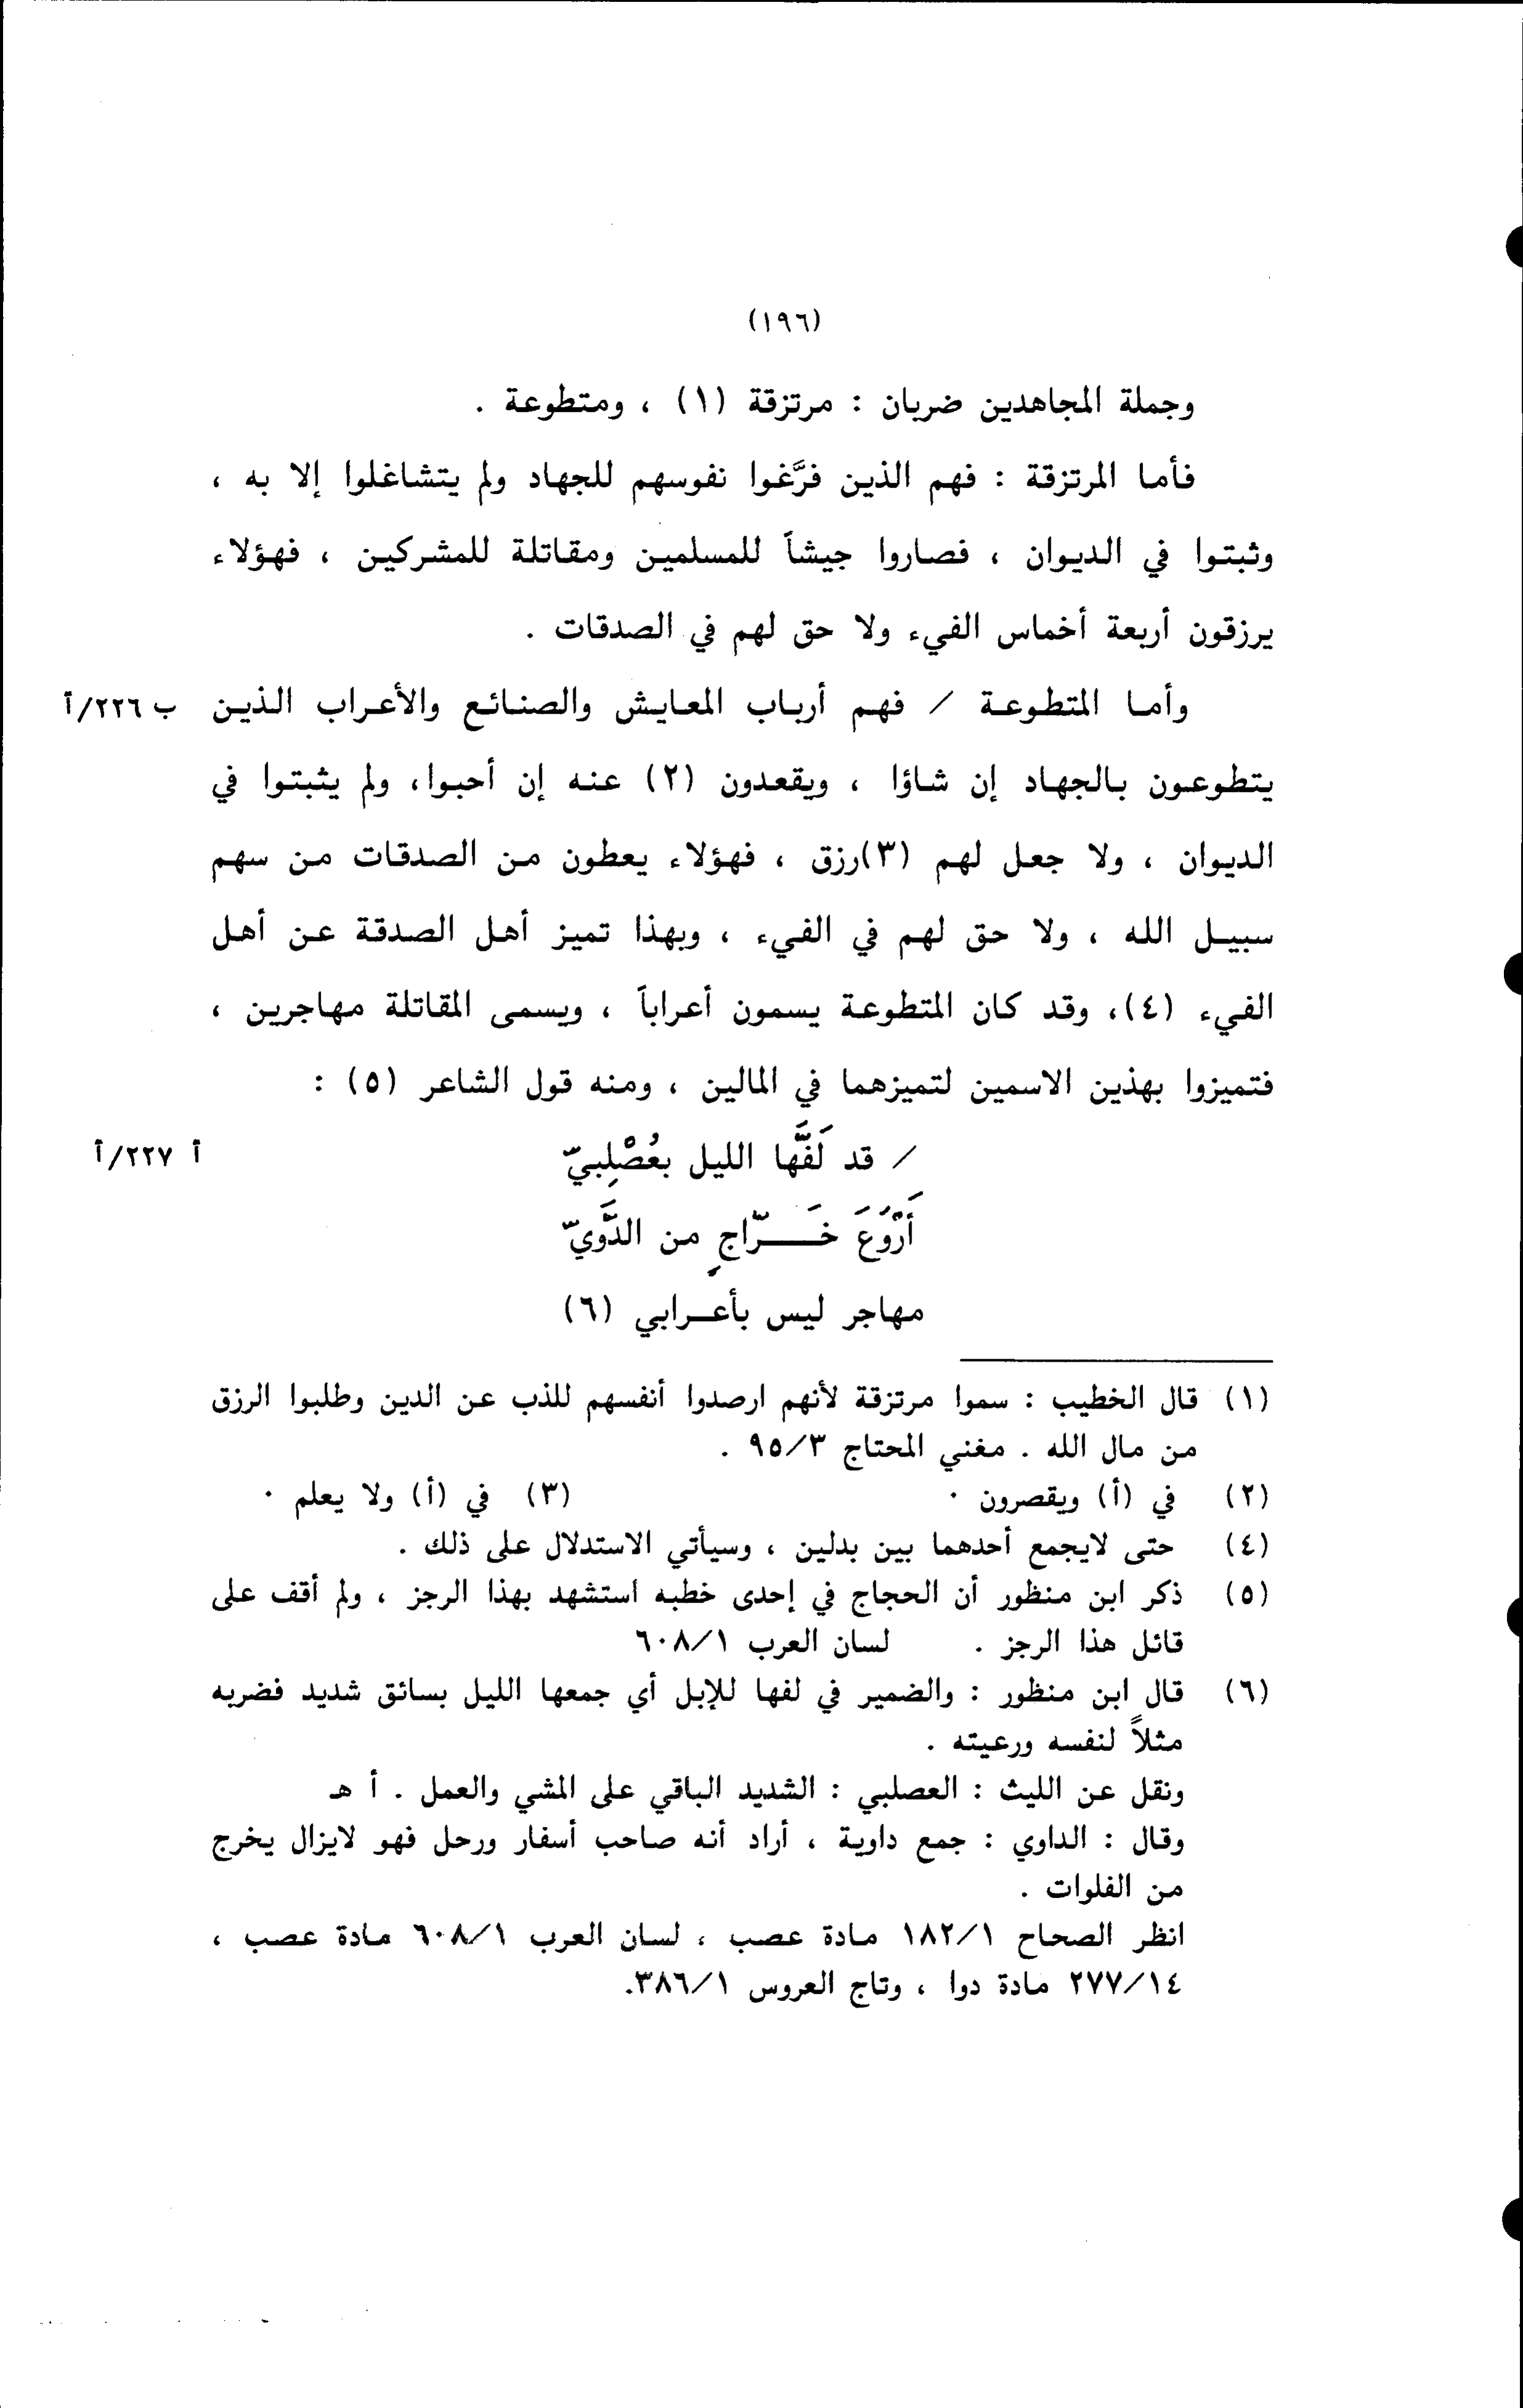 (١٩٦)
وجملة المجاهدين ضربان : مرتزقة (١) ، ومتطوعة .
فأما المرتزقة : فهم الذين فرَّغوا نفوسهم للجهاد ولم يتشاغلوا إلا به ،
وثبتوا في الديوان ، فصاروا جيشاً للمسلمين ومقاتلة للمشركين ، فهؤلاء
يرزقون أربعة أخماس الفيء ولا حق لهم في الصدقات .
وأما المتطوعة / فهم أرباب المعايش والصنائع والأعراب الذين ب ٢٢٦/أ
يتطوعون بالجهاد إن شاؤا ، ويقعدون (٢) عنه إن أحبوا، ولم يثبتوا في
الديوان ، ولا جعل لهم (٣)رزق ، فهؤلاء يعطون من الصدقات من سهم
سبيل الله ، ولا حق لهم في الفيء ، وبهذا تميز أهل الصدقة عن أهل
الفيء (٤)، وقد كان المتطوعة يسمون أعراباً ، ويسمى المقاتلة مهاجرين ،
فتميزوا بهذين الاسمين لتميزهما في المالين ، ومنه قول الشاعر (٥) :
/ قد لَفَّها الليل بعُصْلِبيّ أ ٢٢٧/أ
أَرْوَعَ خَـــرّاجٍ من الدَّويّ
مهاجر ليس بأعـرابي (٦)
(١) قال الخطيب : سموا مرتزقة لأنهم ارصدوا أنفسهم للذب عن الدين وطلبوا الرزق
من مال الله . مغني المحتاج ٩٥/٣ .
(٢) في (أ) ويقصرون . (٣) في (أ) ولا يعلم .
(٤) حتى لايجمع أحدهما بين بدلين ، وسيأتي الاستدلال على ذلك .
(٥) ذكر ابن منظور أن الحجاج في إحدى خطبه استشهد بهذا الرجز ، ولم أقف على
قائل هذا الرجز . لسان العرب ٦٠٨/١
(٦) قال ابن منظور : والضمير في لفها للإبل أي جمعها الليل بسائق شديد فضربه
مثلاً لنفسه ورعيته .
ونقل عن الليث : العصلبي : الشديد الباقي على المشي والعمل . أ هـ
وقال : الداوي : جمع داوية ، أراد أنه صاحب أسفار ورحل فهو لايزال يخرج
من الفلوات .
انظر الصحاح ١٨٢/١ مادة عصب ، لسان العرب ٦٠٨/١ مادة عصب ،
٢٧٧/١٤ مادة دوا ، وتاج العروس ٣٨٦/١.